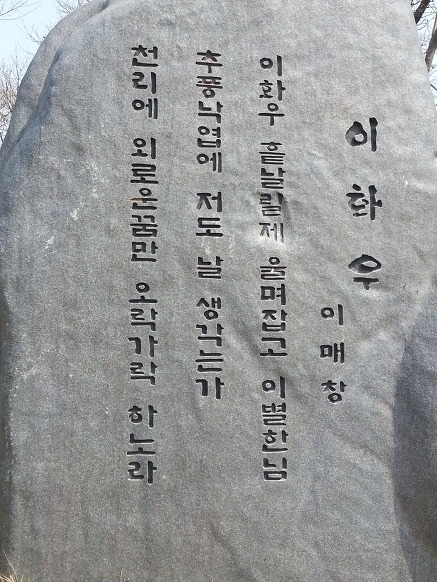 이화우
이매창
이화우 흩날릴제 울며잡고 이별한님
추풍낙엽에 저도 날 생각는가
천리에 외로운꿈만 오락가락 하노라